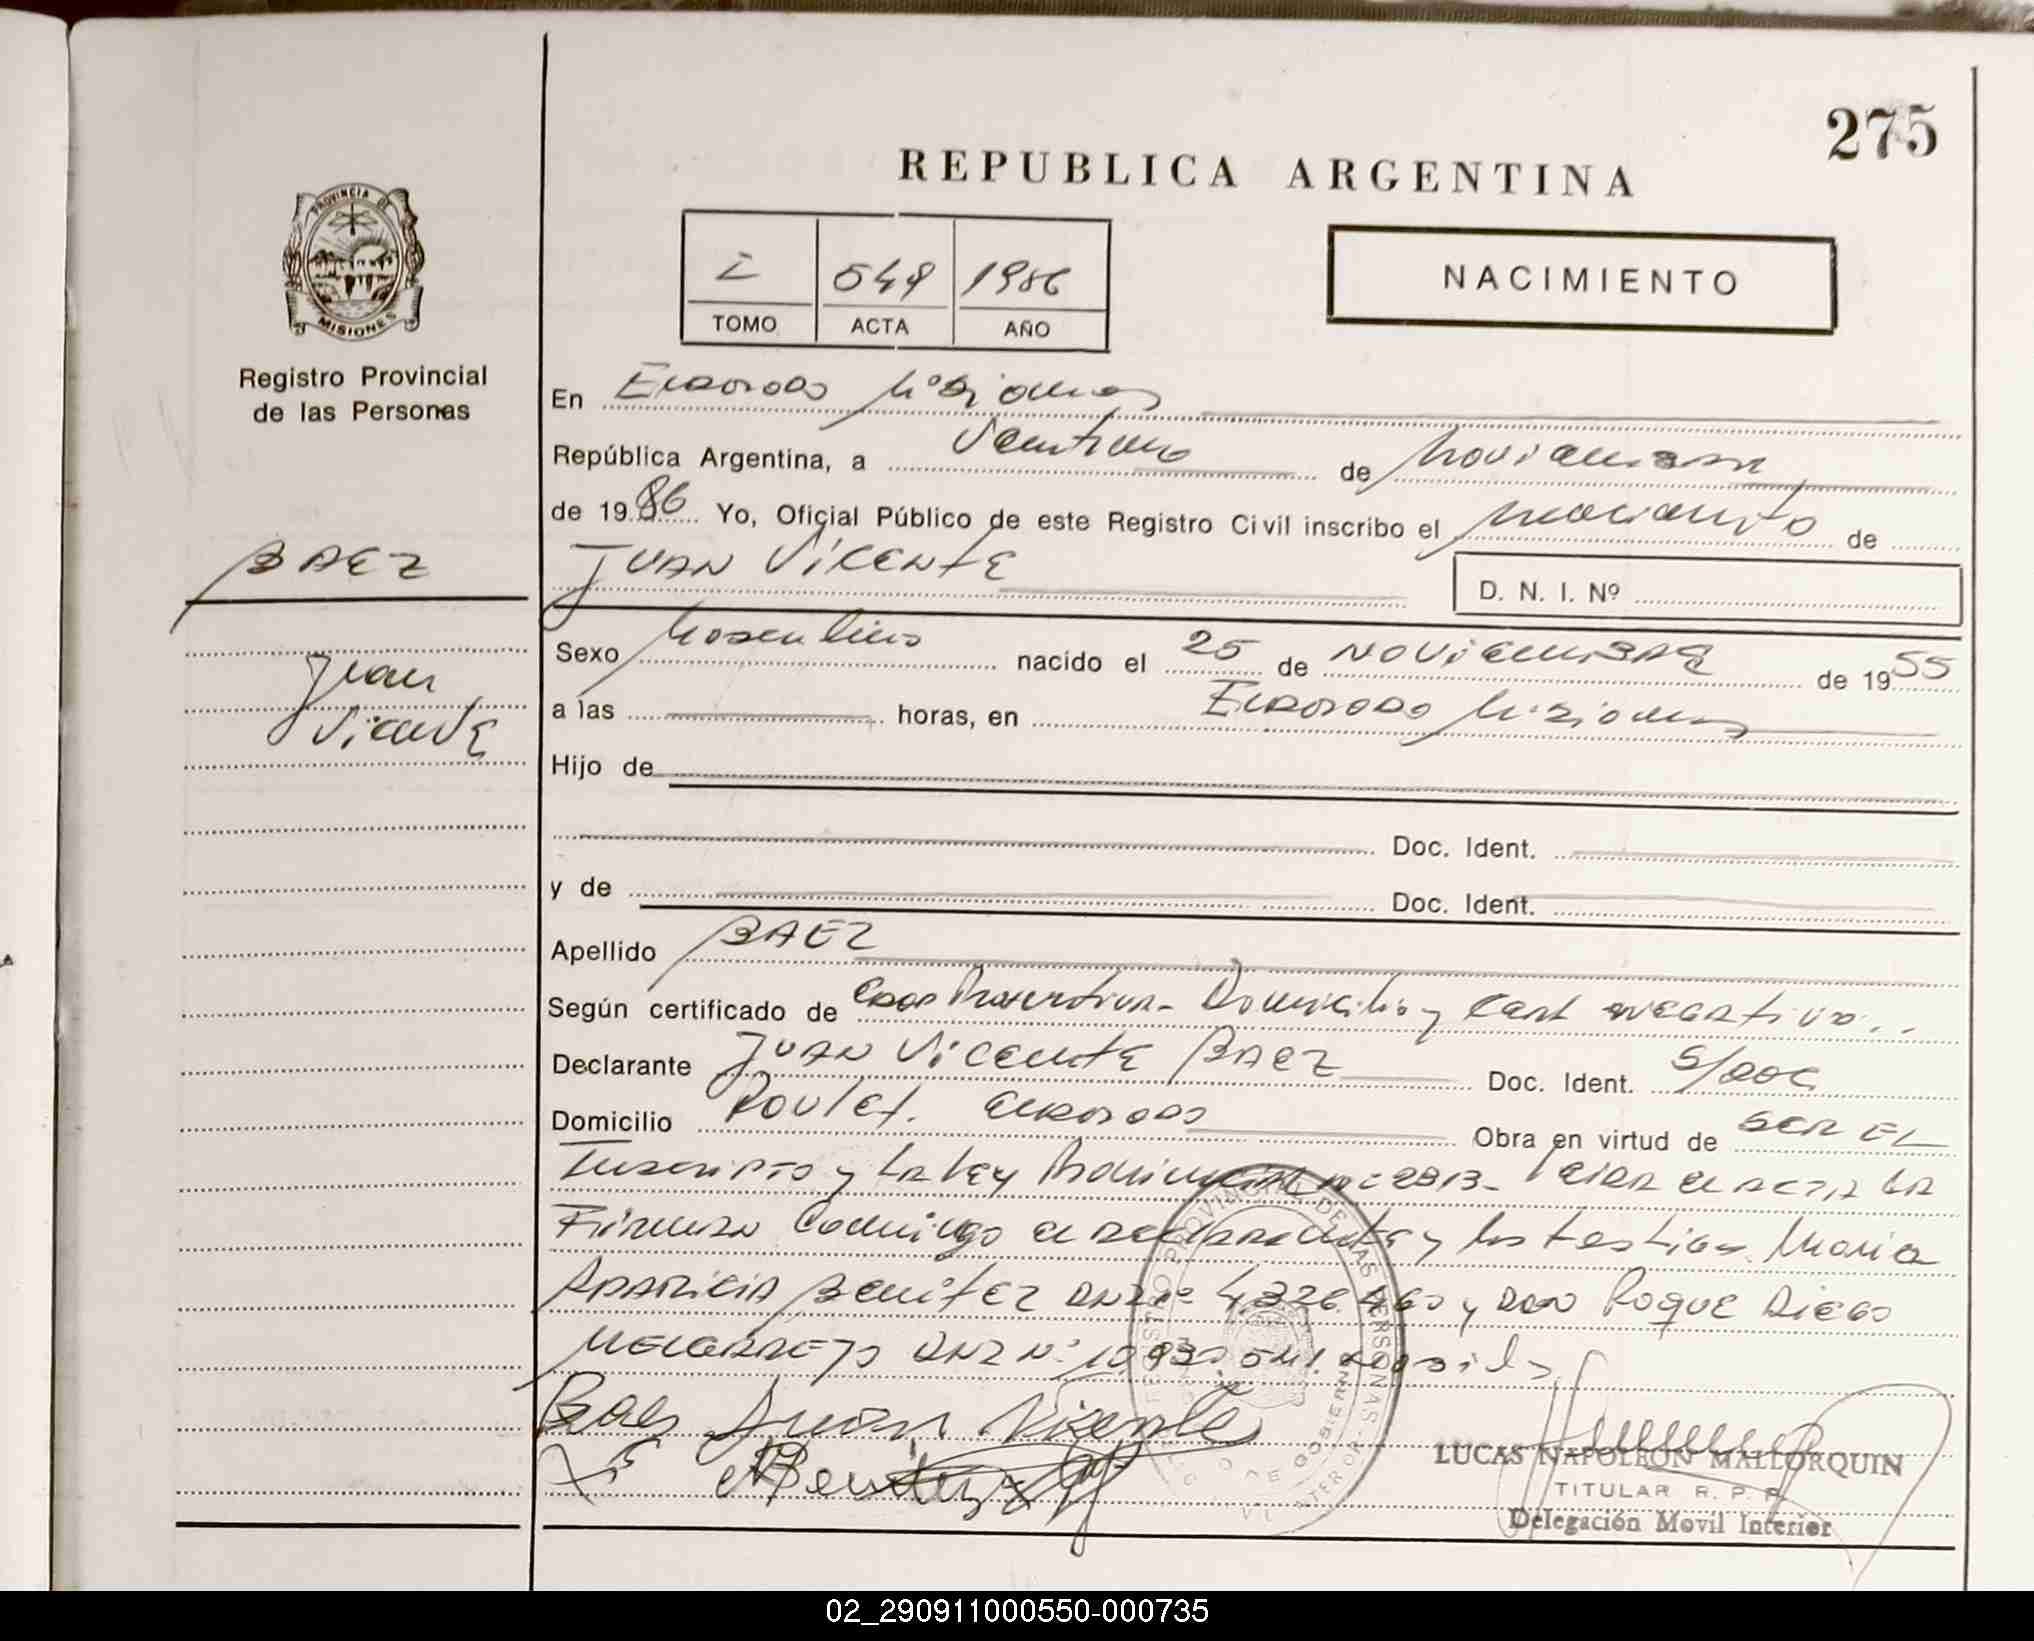 275
REPUBLICA ARGENTINA
PROVINCIA DE
MISIONES
I 549 1986
TOMO ACTA AÑO
NACIMIENTO
Registro Provincial
de las Personas
BAEZ
Juan
Vicente
En Eldorado Misiones
República Argentina, a Veintiuno de Noviembre
de 1986 Yo, Oficial Público de este Registro Civil inscribo el nacimiento de
JUAN VICENTE D. N. I. Nº
Sexo Masculino nacido el 25 de NOVIEMBRE de 1955
a las horas, en Eldorado Misiones
Hijo de
Doc. Ident.
y de Doc. Ident.
Apellido BAEZ
Según certificado de Domicilio y negativo..
Declarante JUAN VICENTE BAEZ Doc. Ident. S/DOC
Domicilio Eldorado Obra en virtud de SER EL
Inscripto y la Ley Provincial nº 2313- Leida el acta la
Firman Conmigo el declarante y los testigos Maria
APARICIA BENITEZ DNI nº 4.326.460 y DON ROQUE DIEGO
MELGAREJO DNI Nº 10.930.541.
Baes Juan Vicente
ABenitez
REGISTRO PROVINCIAL DE LAS PERSONAS
LUCAS NAPOLEON MALLORQUIN
TITULAR R. P. P.
Delegación Movil Interior
02_290911000550-000735